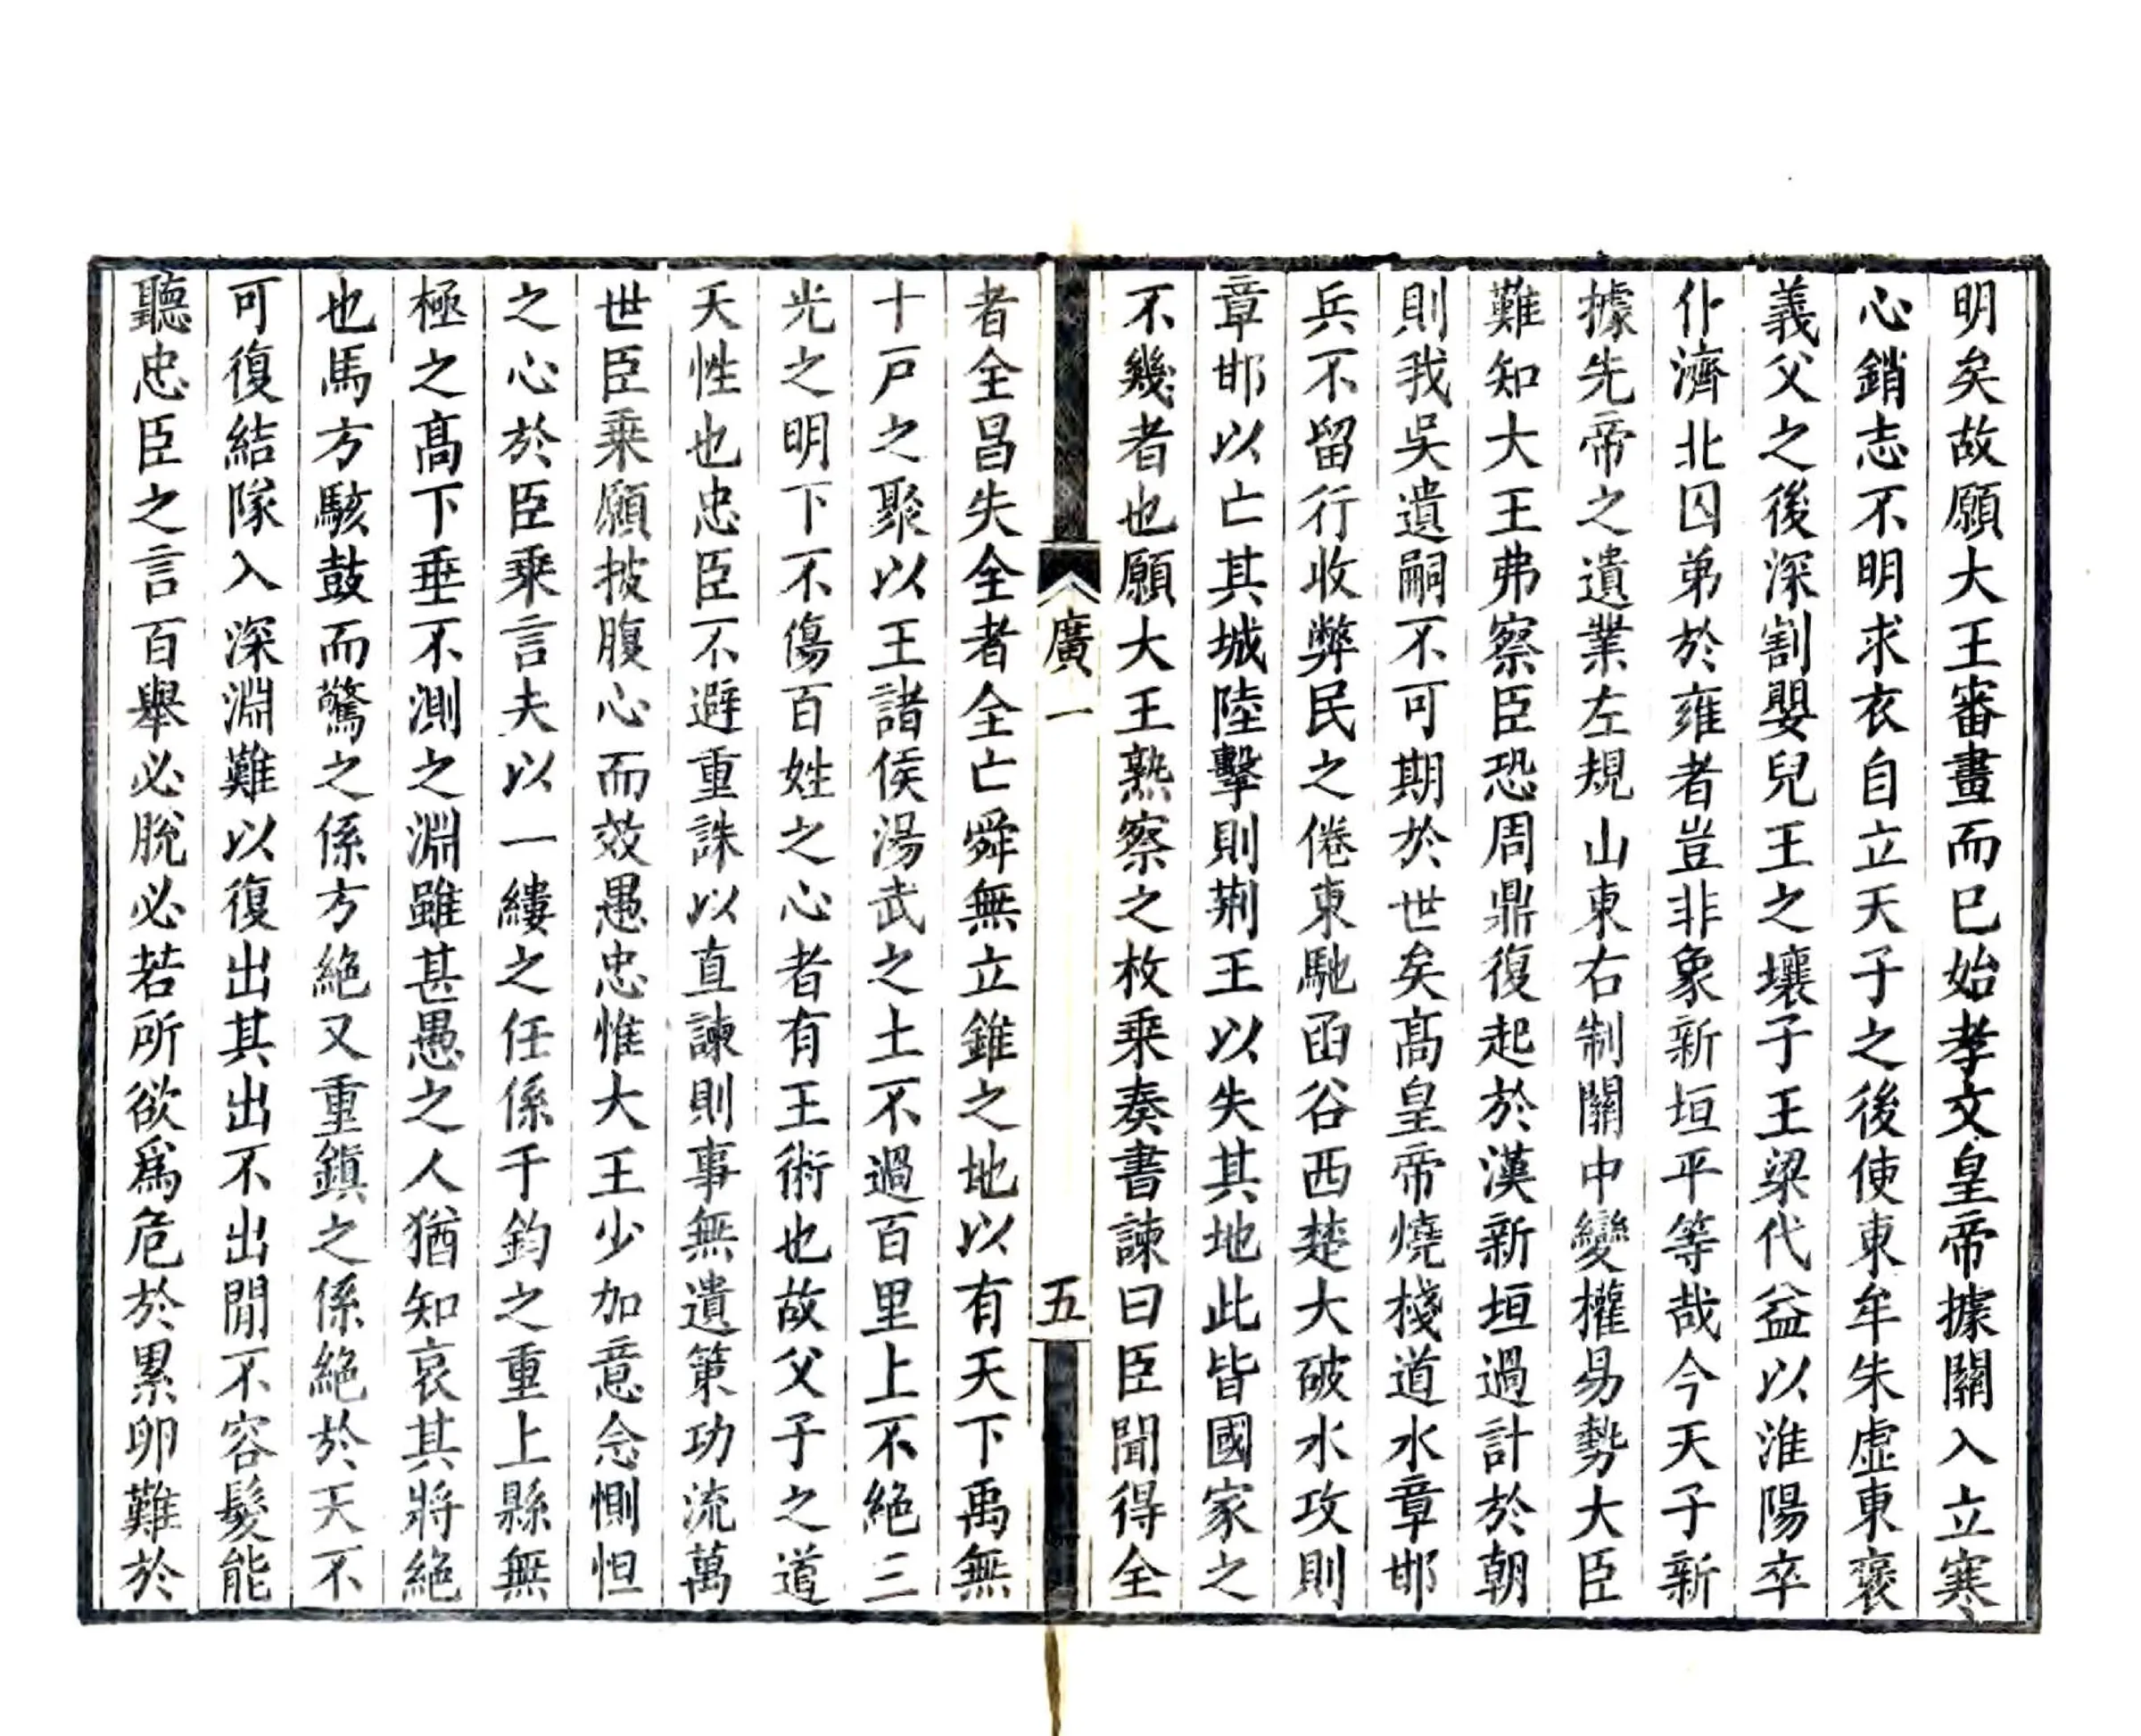 明矣故願大王審畫而已始孝文皇帝據關入立寒
心銷志不明求衣自立天子之後使東牟朱虛東褒
義父之後深割嬰兒王之壤子王梁代益以淮陽卒
仆濟北囚弟於雍者豈非象新垣平等哉今天子新
據先帝之遺業左規山東右制關中變權易勢大臣
難知大王弗察臣恐周鼎復起於漢新垣過計於朝
則我吳遺嗣不可期於世矣髙皇帝燒棧道水章邯
兵不留行收弊民之倦東馳函谷西楚大破水攻則
章邯以亡其城陸擊則荆王以失其地此皆國家之
不幾者也願大王熟察之枚乗奏書諫曰臣聞得全
廣一
五
者全昌失全者全亡舜無立錐之地以有天下禹無
十戸之聚以王諸侯湯武之土不過百里上不絕三
光之明下不傷百姓之心者有王術也故父子之道
天性也忠臣不避重誅以直諫則事無遺策功流萬
世臣乗願披腹心而效愚忠惟大王少加意念惻怛
之心於臣乘言夫以一縷之任係千鈞之重上縣無
極之髙下垂不測之淵雖甚愚之人猶知哀其將絕
也馬方駭鼓而驚之係方絕又重鎮之係絕於天不
可復結隊入深淵難以復出其出不出間不容髮能
聽忠臣之言百舉必脫必若所欲爲危於累卵難於